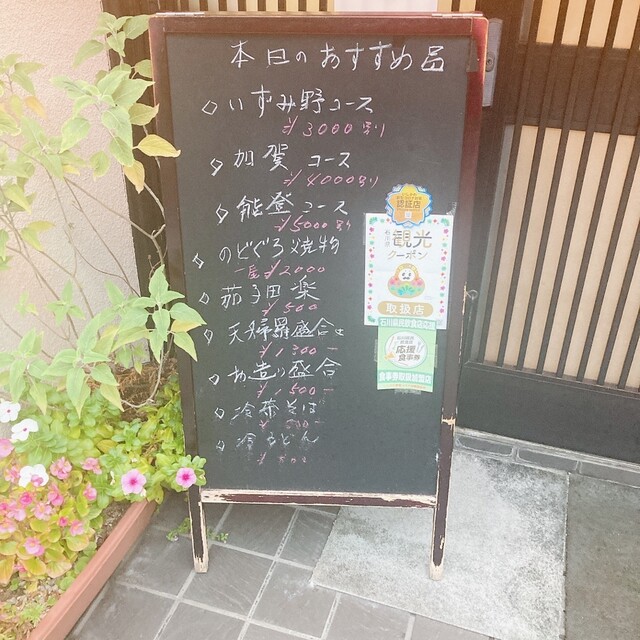 本日のおすすめ品
◇いずみ野コース
¥3000より
◇加賀コース
¥4000より
◇能登コース
¥5000より
◇のどぐろ焼物
¥2000
◇茄子田楽
¥500
◇天婦羅盛合せ
¥1300ー
◇お造り盛合
¥1500ー
◇冷茶そば
◇冷うどん
認証店
観光
クーポン
取扱店
応援
食事券